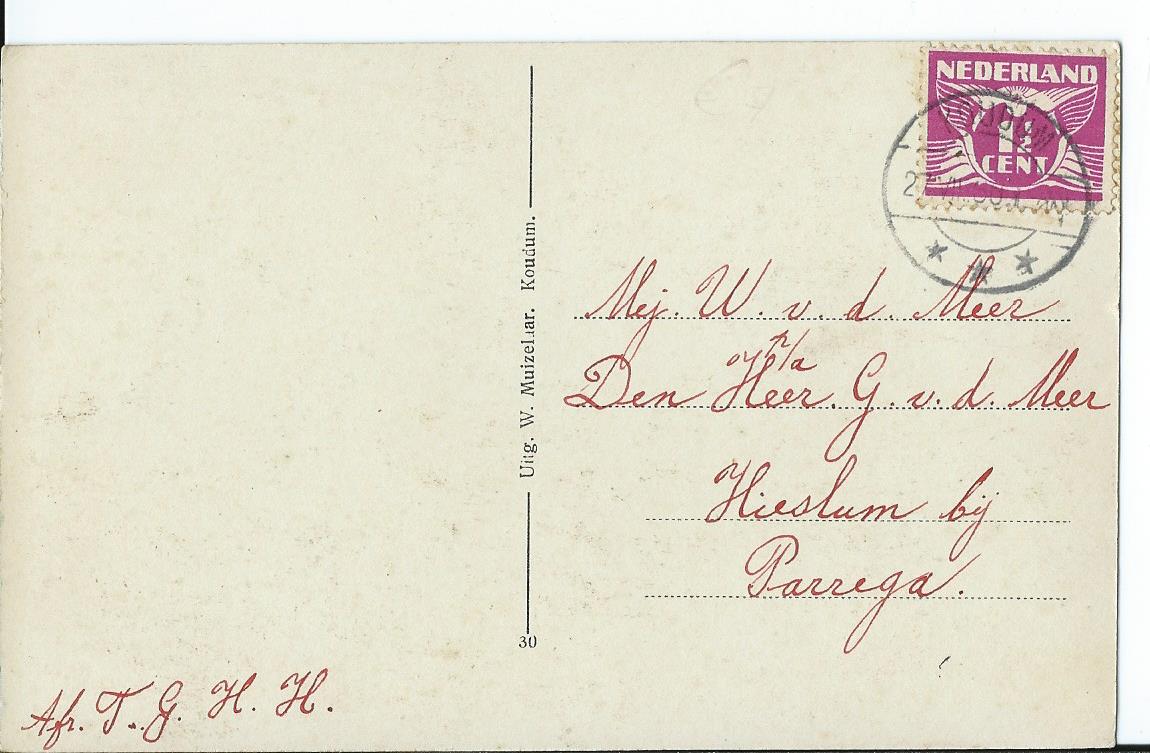 NEDERLAND
1½
CENT
KOUDUM
Mej. W. v. d. Meer
p/a
Den Heer. G. v. d. Meer
Hieslum bij
Parrega.
Uitg. W. Muizelaar. Koudum.
30
Afz. T. G. H. H.